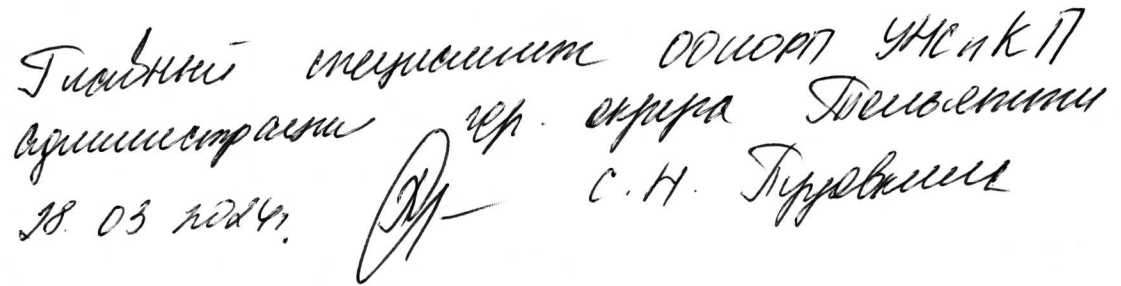 Главный специалист ООиОРП УЖСиКП
администрации гор. округа Тольятти
28.03 2024г. С. Н. Пудовкина